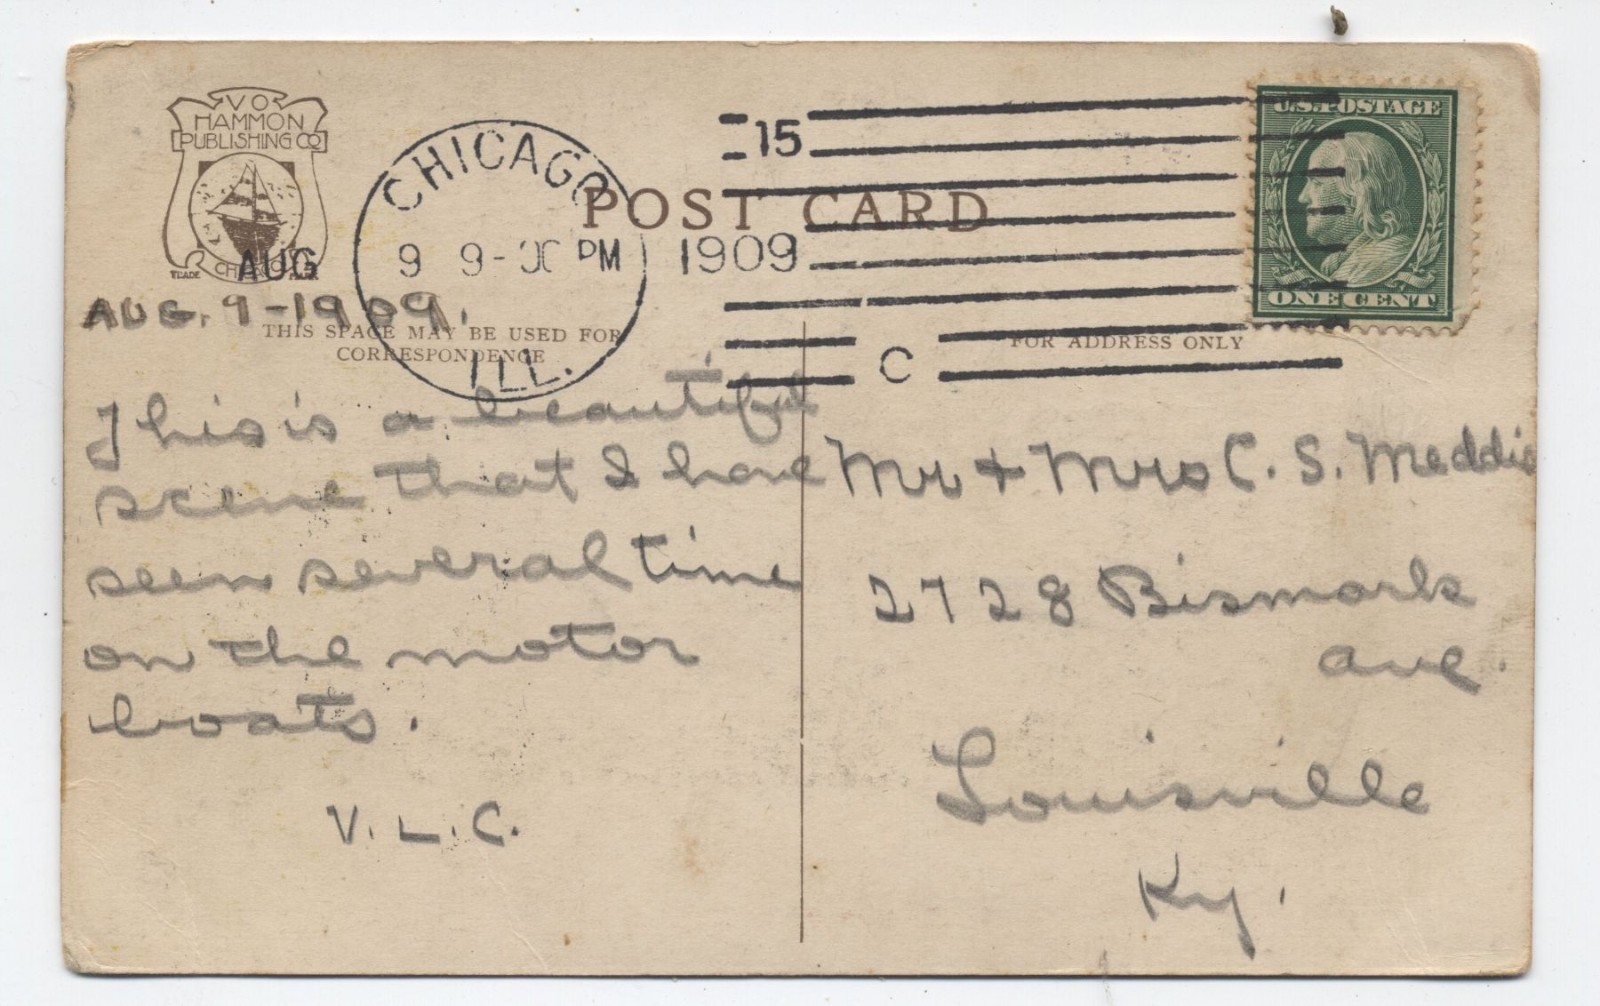 V O
HAMMON
PUBLISHING CO
TRADE CHICAGO MARK
CHICAGO
AUG 9 9-00 PM 1909
ILL.
15
C
POST CARD
U.S. POSTAGE
ONE CENT
AUG. 9-1909.
THIS SPACE MAY BE USED FOR
CORRESPONDENCE
FOR ADDRESS ONLY
This is a beautiful
scene that I have
seen several time
on the motor
boats.
V. L. C.
Mr + Mrs C. S. Meddis
2728 Bismark
ave.
Louisville
Ky.